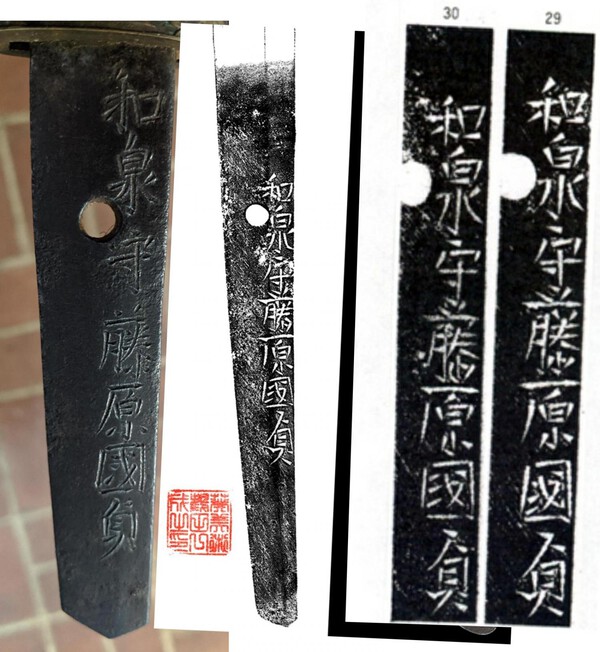 和泉守藤原國貞
和泉守藤原國貞
30
和泉守藤原國貞
29
和泉守藤原國貞